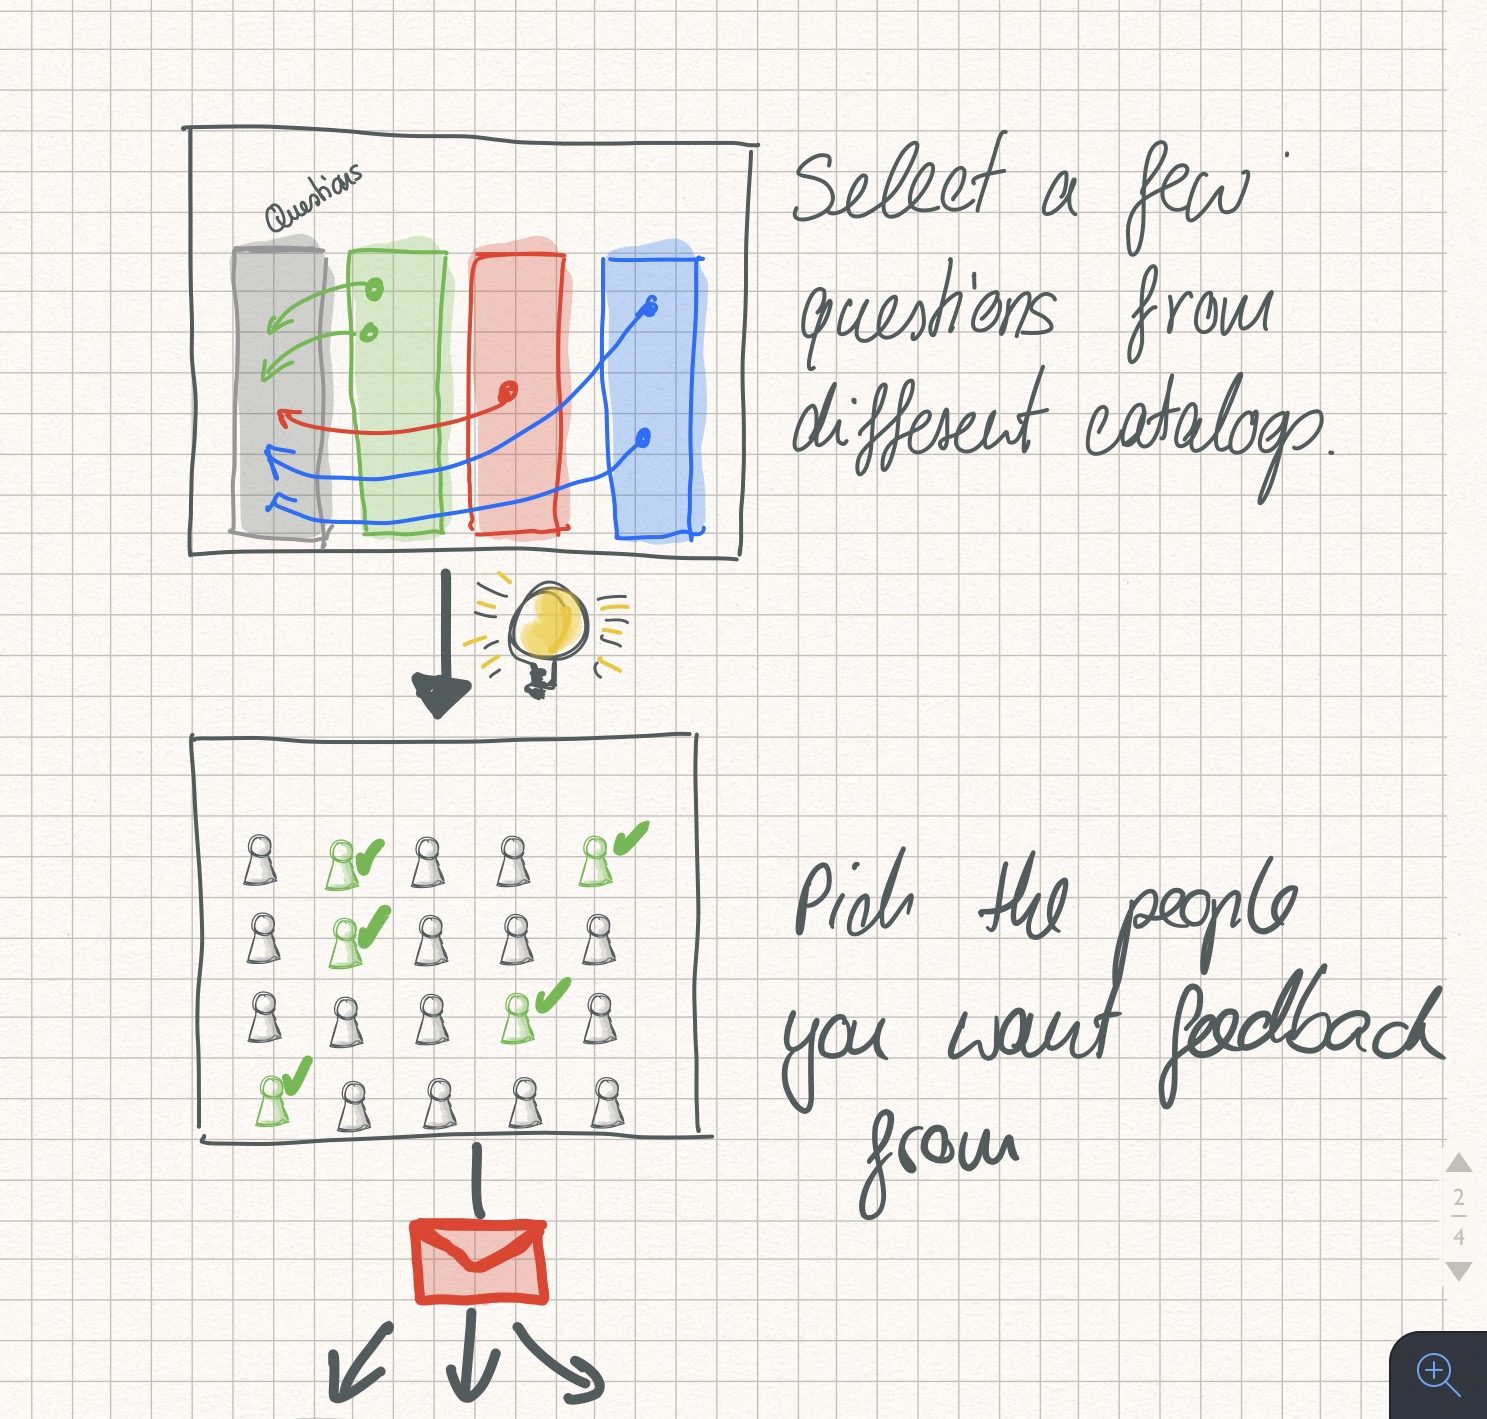 Questions
Select a few
questions from
different catalogs.
Pick the people
you want feedback
from
2
4